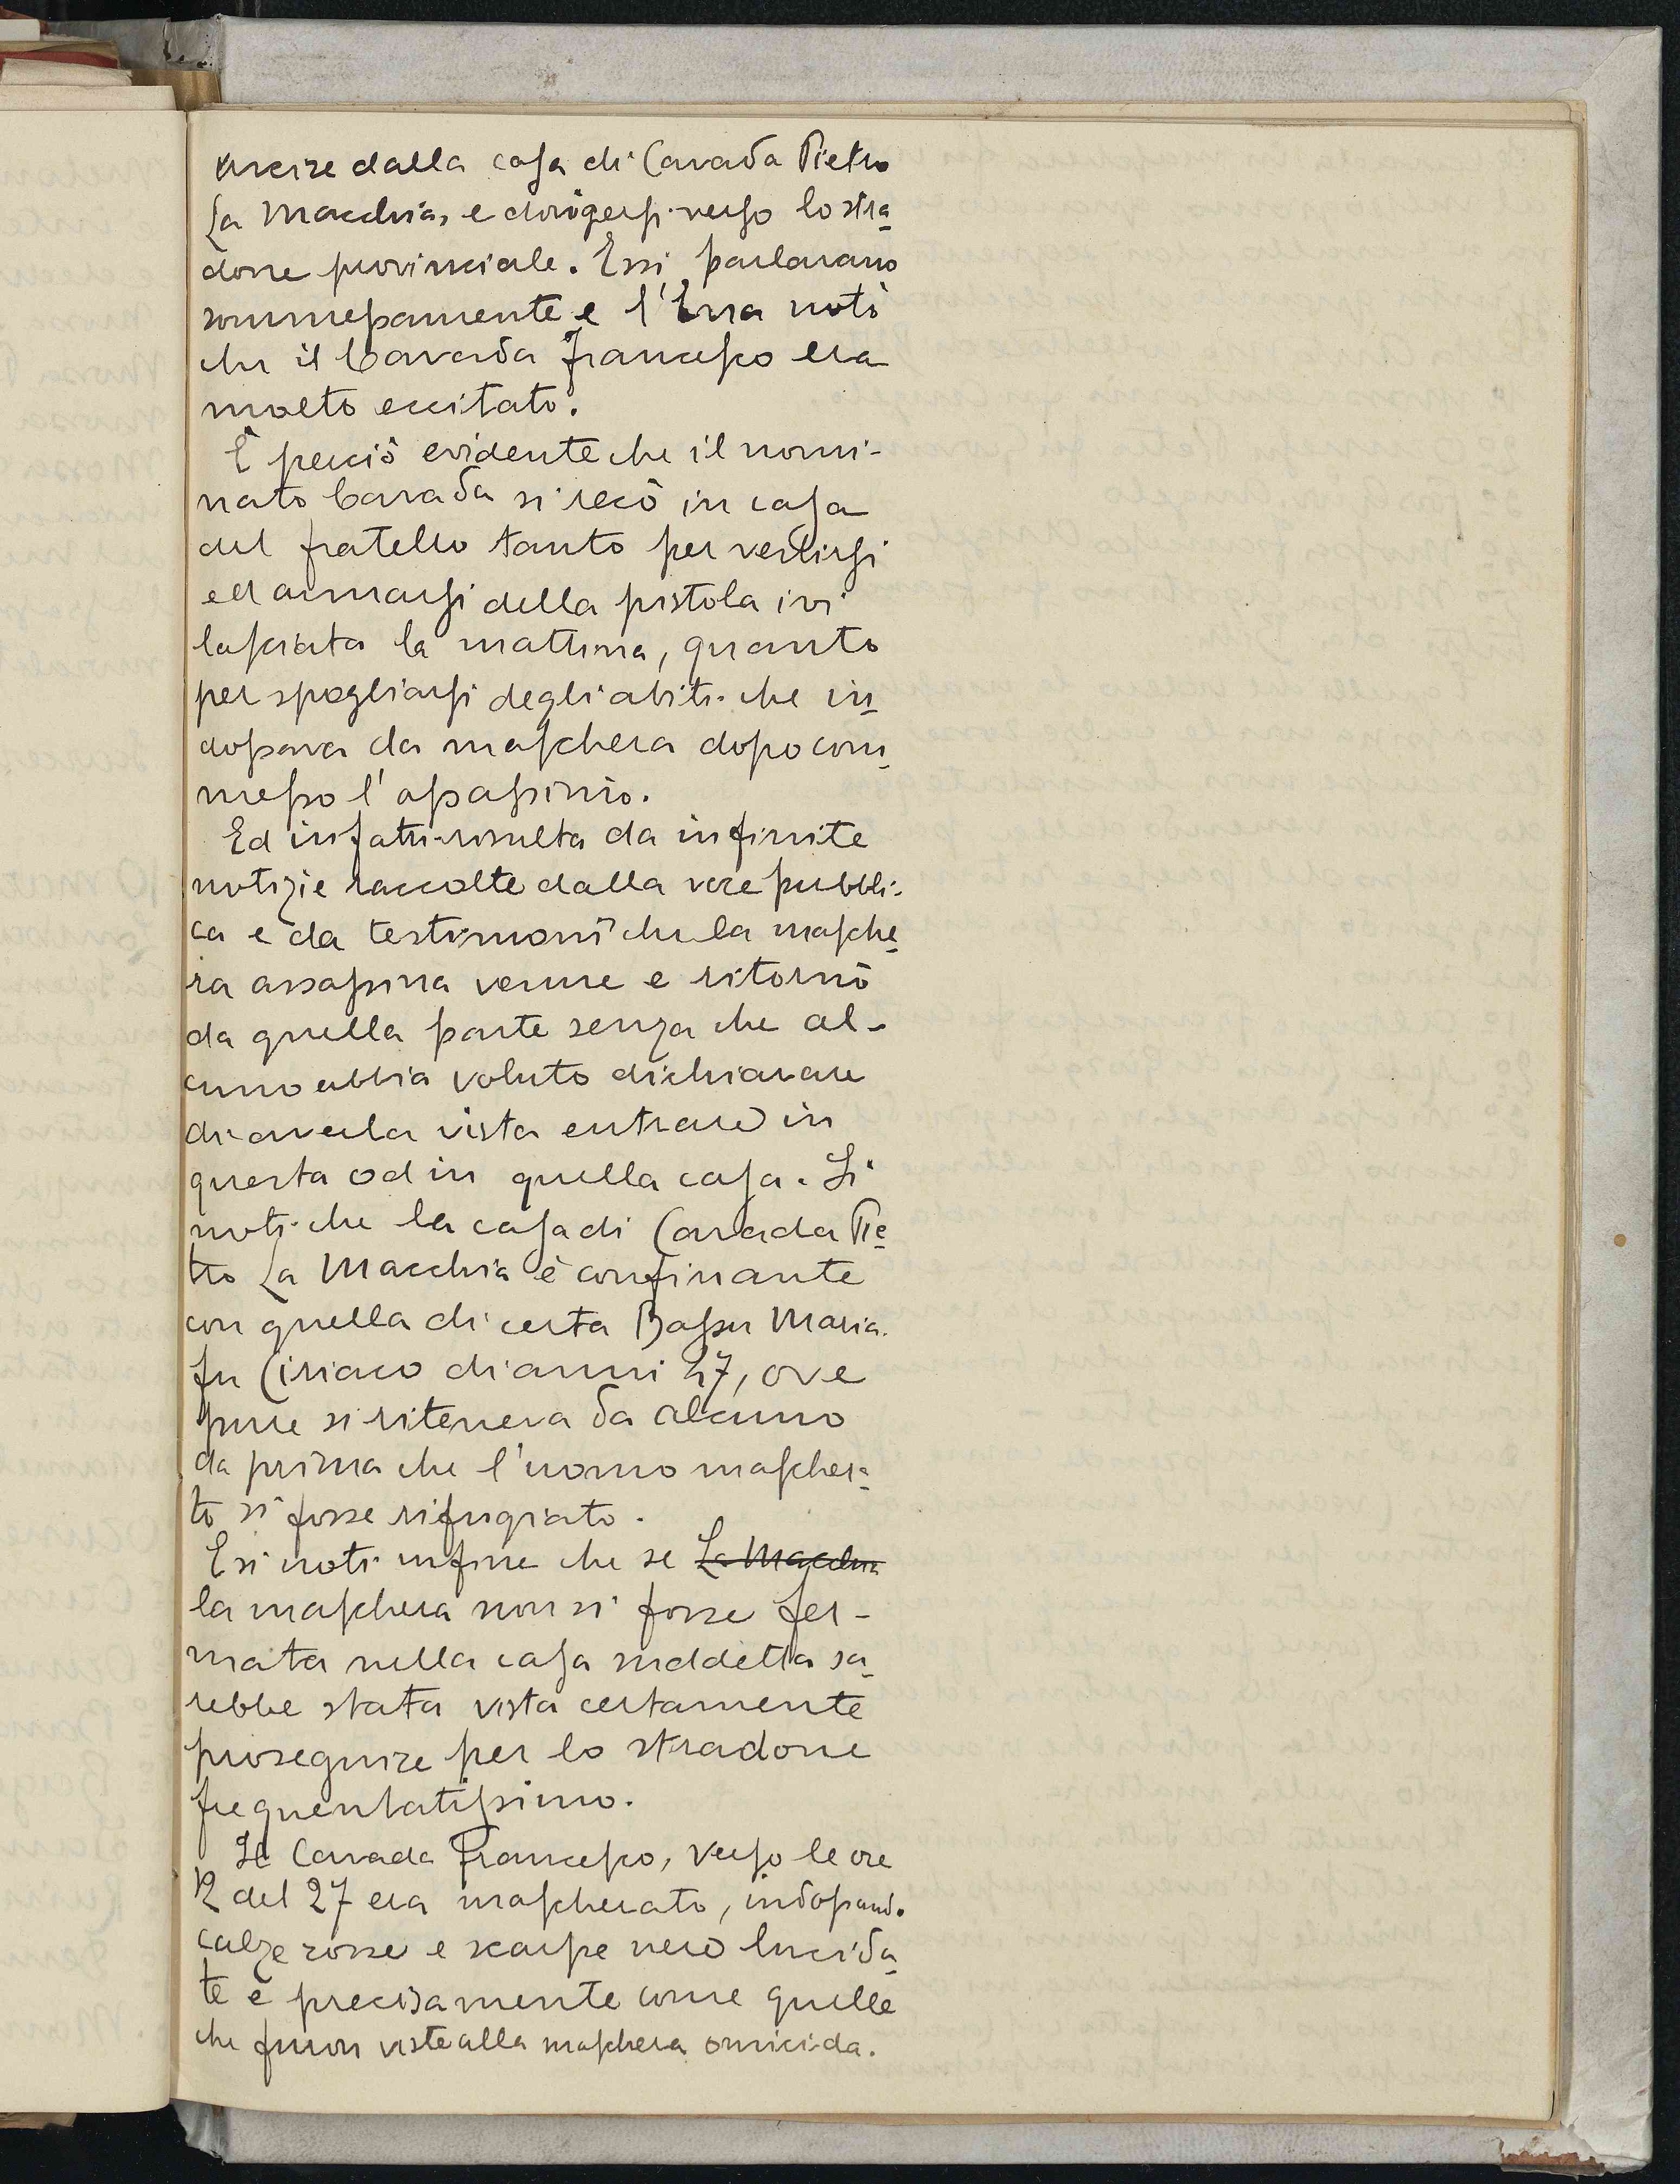 uscire dalla casa di Cavada Pietro
La Macchia, e dirigersi verso lo stra
done provinciale. Essi parlavano
sommessamente e l'Erra notò
che il Cavada Francesco era
molto eccitato.
È perciò evidente che il nomi-
nato Cavada si recò in casa
del fratello tanto per vestirsi
ed armarsi della pistola ivi
lasciata la mattina, quanto
per spogliarsi degli abiti che in
dossava da maschera dopo com
messo l'assassinio.
Ed infatti risulta da infinite
notizie raccolte dalla voce pubbli-
ca e da testimoni che la masche
ra assassina venne e ritornò
da quella parte senza che al-
cuno abbia voluto dichiarare
di averla vista entrare in
questa od in quella casa. Si
noti che la casa di Cavada Pie
tro La Macchia è confinante
con quella di certa Bassu Maria
fu Ciriaco di anni 47, ove
pure si riteneva da alcuno
da prima che l'uomo maschera
to si fosse rifugiato.
E si noti infine che se La Macchia
la maschera non si fosse fer-
mata nella casa suddetta sa
rebbe stata vista certamente
proseguire per lo stradone
frequentatissimo.
Il Cavada Francesco, verso le ore
12 del 27 era mascherato, indossando
calze rosse e scarpe nere lucida
te e precisamente come quelle
che furon viste alla maschera omicida.